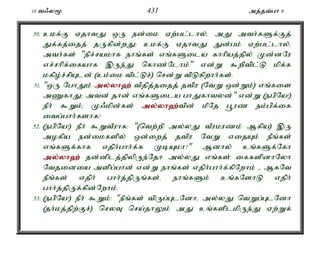 10 வஃலமூ 431 அத்தவ்பா 9
50. உமக்கு ஏதாவது ஒரு நன்மை ஏற்பட்டால், அது அவர்களுக்குத்
துக்கத்தைத் தருகின்றது; உமக்கு ஏதாவது துன்பம் ஏற்பட்டால்,
அவர்கள் "நிச்சயமாக நாங்கள் எங்களுடைய காரியத்தில் முன்னரே
எச்சரிக்கையாக இருந்து கொண்டோம்" என்று கூறிவிட்டு மிக்க
மகிழ்ச்சியுடன் (உம்மை விட்டுச்) சென்று விடுகிறார்கள்.
51. "ஒரு போதும் அல்லாஹ் விதித்ததைத் தவிர (வேறு ஒன்றும்) எங்களை
அணுகாது; அவன் தான் எங்களுடைய பாதுகாவலன்" என்று (நபியே!)
நீர் கூறும்; முஃமின்கள் அல்லாஹ்வின் மீதே பூரண நம்பிக்கை
வைப்பார்களாக!
52. (நபியே!) நீர் கூறுவீராக: "(வெற்றி அல்லது வீரமரணம் ஆகிய) இரு
அழகிய நன்மைகளில் ஒன்றைத் தவிர வேறு எதையும் நீங்கள்
எங்களுக்காக எதிர்பார்க்க முடியுமா?" ஆனால் உங்களுக்கோ
அல்லாஹ் தன்னிடத்திலிருந்தோ அல்லது எங்கள் கைகளினாலோ
வேதனையை அளிப்பான் என்று நாங்கள் எதிர்பார்க்கிறோம் - ஆகவே
நீங்கள் எதிர் பார்த்திருங்கள். நாங்களும் உங்களோடு எதிர்
பார்த்திருக்கின்றோம்.
53. (நபியே!) நீர் கூறும்: "நீங்கள் விருப்புடனோ, அல்லது வெறுப்புடனோ
(தர்மத்திற்குச்) செலவு செய்தாலும் அது உங்களிடமிருந்து ஏற்றுக்